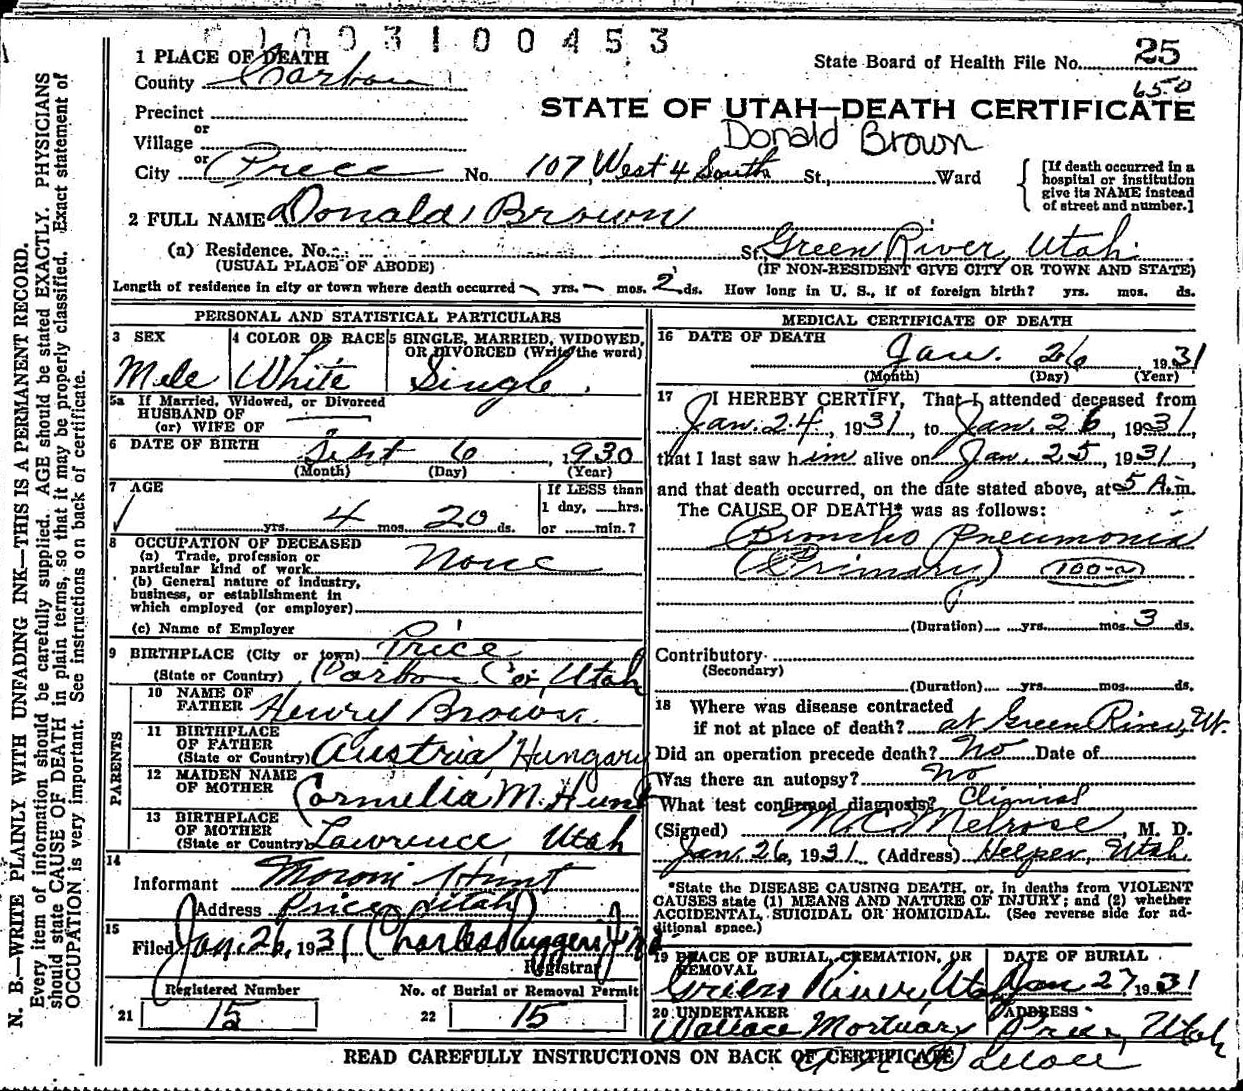 1003100453
1 PLACE OF DEATH
County Carbon
State Board of Health File No. 25
650
Precinct
STATE OF UTAH—DEATH CERTIFICATE
or
Village
Donald Brown
or
City Price No. 107 West 4 South St., Ward
[If death occurred in a
hospital or institution
give its NAME instead
of street and number.]
2 FULL NAME Donald Brown
(a) Residence. No. St. Green River, Utah.
(USUAL PLACE OF ABODE) (IF NON-RESIDENT GIVE CITY OR TOWN AND STATE)
Length of residence in city or town where death occurred — yrs. — mos. 2 ds. How long in U. S., if of foreign birth? yrs. mos. ds.
PERSONAL AND STATISTICAL PARTICULARS
3 SEX
Male
4 COLOR OR RACE
White
5 SINGLE, MARRIED, WIDOWED,
OR DIVORCED (Write the word)
Single.
5a If Married, Widowed, or Divorced
HUSBAND OF
(or) WIFE OF
6 DATE OF BIRTH Sept 6, 1930
(Month) (Day) (Year)
7 AGE
yrs. 4 mos. 20 ds.
If LESS than
1 day, hrs.
or min.?
8 OCCUPATION OF DECEASED
(a) Trade, profession or
particular kind of work None
(b) General nature of industry,
business, or establishment in
which employed (or employer)
(c) Name of Employer
9 BIRTHPLACE (City or town) Price
(State or Country) Carbon Co, Utah
PARENTS
10 NAME OF
FATHER Henry Brown.
11 BIRTHPLACE
OF FATHER
(State or Country) Austria Hungary
12 MAIDEN NAME
OF MOTHER Cornelia M. Hunt
13 BIRTHPLACE
OF MOTHER
(State or Country) Lawrence, Utah
14
Informant Moroni Hunt
Address Price Utah
15
Filed Jan. 26, 1931
Registrar
Registered Number
21 15
No. of Burial or Removal Permit
22 15
MEDICAL CERTIFICATE OF DEATH
16 DATE OF DEATH
Jan. 26 1931
(Month) (Day) (Year)
17 I HEREBY CERTIFY, That I attended deceased from
Jan. 24, 1931, to Jan. 26, 1931,
that I last saw him alive on Jan. 25, 1931,
and that death occurred, on the date stated above, at 5 A.m.
The CAUSE OF DEATH* was as follows:
Broncho Pneumonia
(Primary) 100-a
(Duration) yrs. mos. 3 ds.
Contributory
(Secondary)
(Duration) yrs. mos. ds.
18 Where was disease contracted
if not at place of death? at Green River, Ut.
Did an operation precede death? No Date of
Was there an autopsy? No
What test confirmed diagnosis? Clinical
(Signed) M.C. Melrose, M. D.
Jan. 26, 1931 (Address) Helper, Utah.
*State the DISEASE CAUSING DEATH, or, in deaths from VIOLENT
CAUSES state (1) MEANS AND NATURE OF INJURY; and (2) whether
ACCIDENTAL, SUICIDAL OR HOMICIDAL. (See reverse side for ad-
ditional space.)
19 PLACE OF BURIAL, CREMATION, OR
REMOVAL
Green River, Utah
DATE OF BURIAL
Jan 27 1931
20 UNDERTAKER
Wallace Mortuary
ADDRESS
Price, Utah
READ CAREFULLY INSTRUCTIONS ON BACK OF CERTIFICATE
Wallace
N. B.—WRITE PLAINLY WITH UNFADING INK—THIS IS A PERMANENT RECORD.
Every item of information should be carefully supplied. AGE should be stated EXACTLY. PHYSICIANS
should state CAUSE OF DEATH in plain terms, so that it may be properly classified. Exact statement of
OCCUPATION is very important. See instructions on back of certificate.